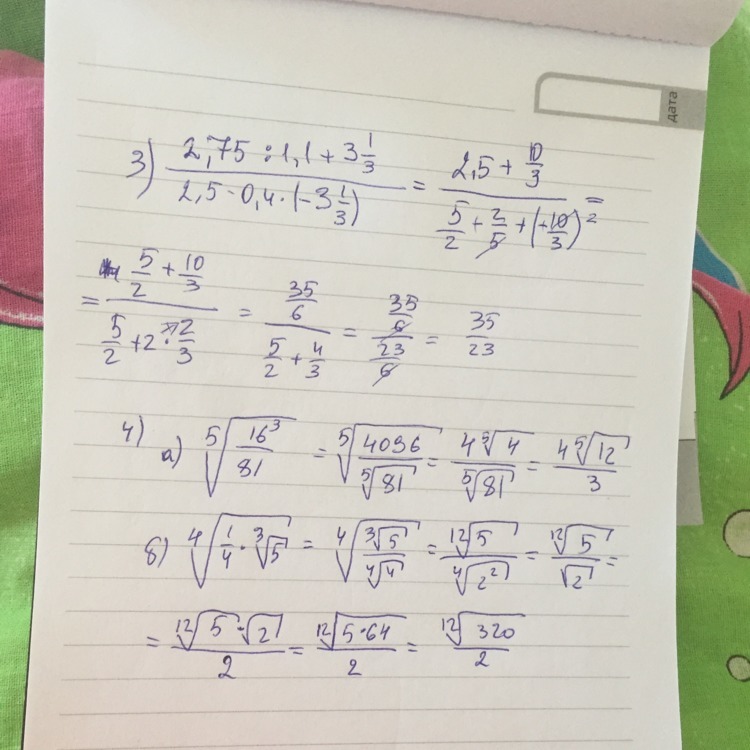 дата
3) \frac{2,75 : 1,1 + 3\frac{1}{3}}{2,5 - 0,4 \cdot (-3\frac{1}{3})} = \frac{2,5 + \frac{10}{3}}{\frac{5}{2} + \frac{2}{5} + (+\frac{10}{3})^2} =
= \frac{\frac{5}{2} + \frac{10}{3}}{\frac{5}{2} + 2 \cdot \frac{2}{3}} = \frac{\frac{35}{6}}{\frac{5}{2} + \frac{4}{3}} = \frac{\frac{35}{6}}{\frac{23}{6}} = \frac{35}{23}
4) а) \sqrt[5]{\frac{16^3}{81}} = \sqrt[5]{\frac{4036}{\sqrt[5]{81}}} = \frac{4\sqrt[5]{4}}{\sqrt[5]{81}} = \frac{4\sqrt[5]{12}}{3}
б) \sqrt[4]{\frac{1}{4} \cdot \sqrt[3]{5}} = \sqrt[4]{\frac{\sqrt[3]{5}}{\sqrt[4]{4}}} = \frac{\sqrt[12]{5}}{\sqrt[4]{2^2}} = \frac{\sqrt[12]{5}}{\sqrt{2}} =
= \frac{\sqrt[12]{5} \cdot \sqrt{2}}{2} = \frac{\sqrt[12]{5 \cdot 64}}{2} = \frac{\sqrt[12]{320}}{2}